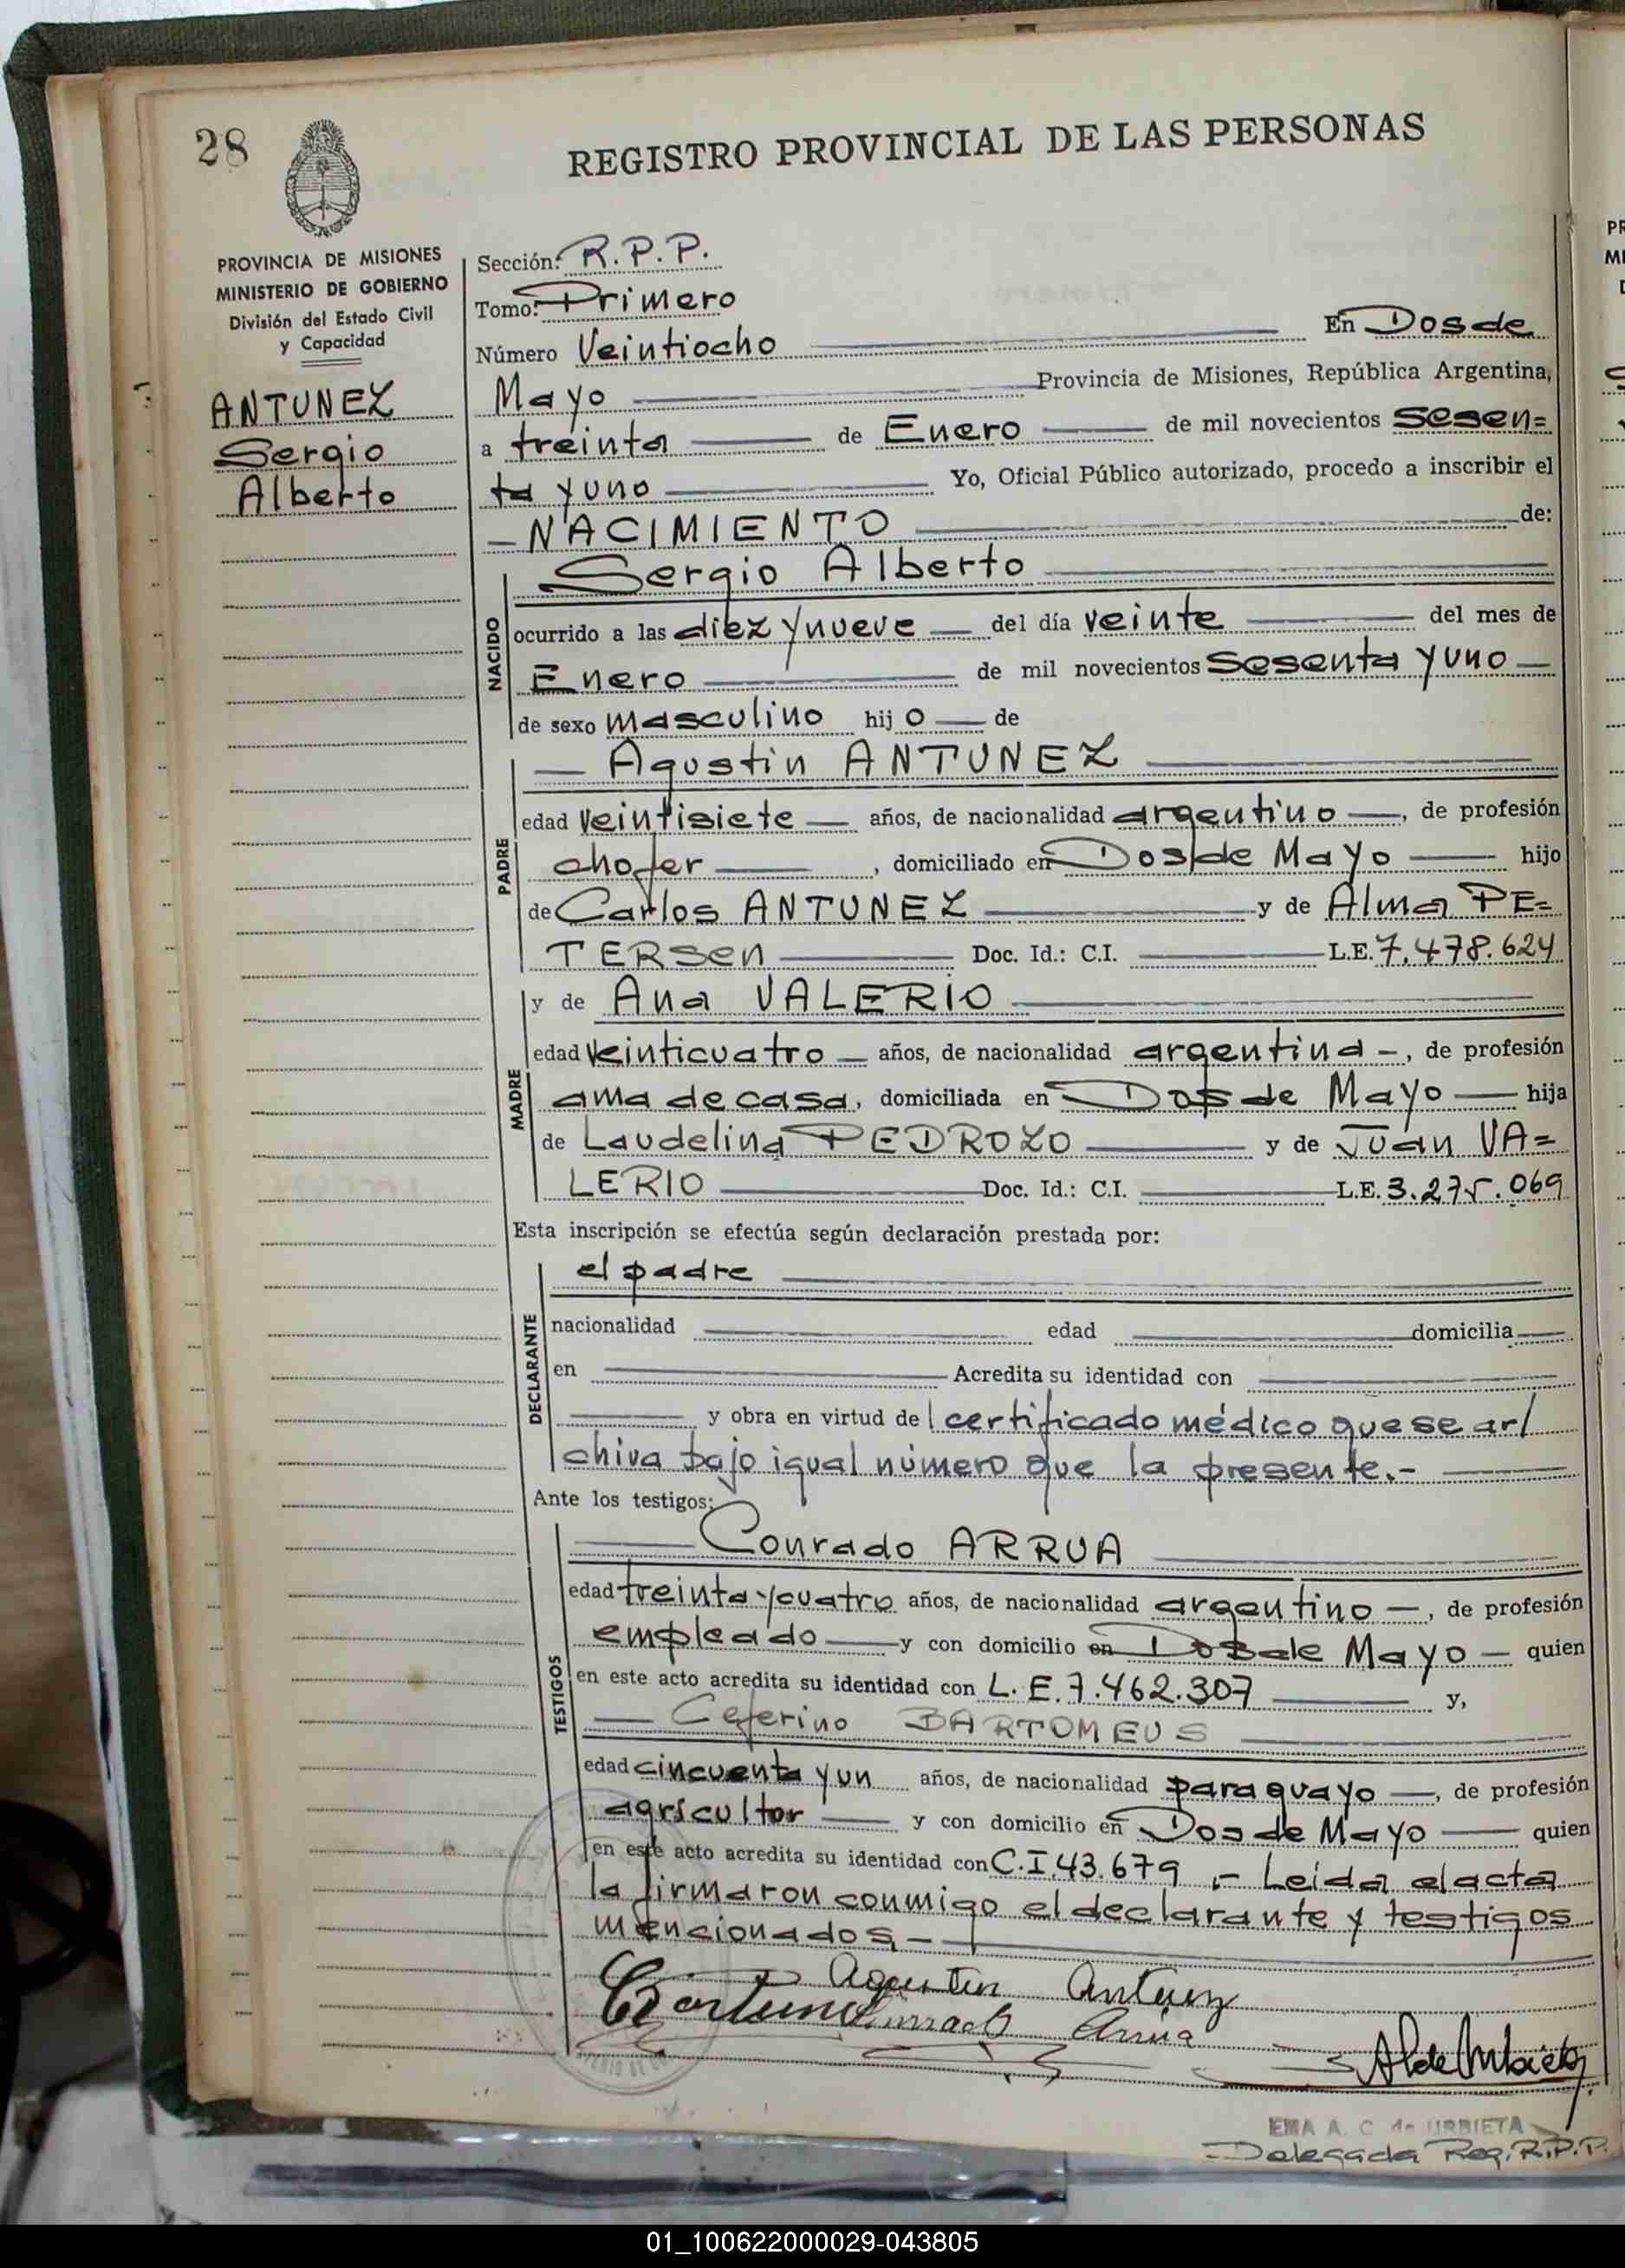 28
REGISTRO PROVINCIAL DE LAS PERSONAS
PROVINCIA DE MISIONES
MINISTERIO DE GOBIERNO
División del Estado Civil
y Capacidad
ANTUNEZ
Sergio
Alberto
Sección: R.P.P.
Tomo: Primero
Número Veintiocho En Dos de
Mayo Provincia de Misiones, República Argentina,
a treinta de Enero de mil novecientos sesen=
ta y uno Yo, Oficial Público autorizado, procedo a inscribir el
- NACIMIENTO de:
NACIDO
Sergio Alberto
ocurrido a las diez y nueve del día veinte del mes de
Enero de mil novecientos sesenta y uno
de sexo masculino hijo de
PADRE
Agustin ANTUNEZ
edad veintisiete años, de nacionalidad argentino, de profesión
chofer, domiciliado en Dos de Mayo hijo
de Carlos ANTUNEZ y de Alma PE=
TERSEN Doc. Id.: C.I. L.E. 7.478.624
MADRE
y de Ana VALERIO
edad veinticuatro años, de nacionalidad argentina -, de profesión
ama de casa, domiciliada en Dos de Mayo hija
de Laudelina PEDROZO y de Juan VA=
LERIO Doc. Id.: C.I. L.E. 3.275.069
Esta inscripción se efectúa según declaración prestada por:
DECLARANTE
el padre
nacionalidad edad domicilia
en Acredita su identidad con
y obra en virtud del certificado médico que se ar/
chiva bajo igual número que la presente.-
Ante los testigos:
TESTIGOS
Conrado ARRUA
edad treinta y cuatro años, de nacionalidad argentino -, de profesión
empleado y con domicilio en Dos de Mayo quien
en este acto acredita su identidad con L.E. 7.462.307 y,
Ceferino BARTOMEUS
edad cincuenta y un años, de nacionalidad paraguayo, de profesión
agricultor y con domicilio en Dos de Mayo quien
en este acto acredita su identidad con C.I. 43.679 .- Leída el acta
la firmaron conmigo el declarante y testigos
mencionados.-
Agustin Antunez
Conrado Arrua
EMA A. C. de URBIETA
Delegada Reg. R.P.P.
01_100622000029-043805